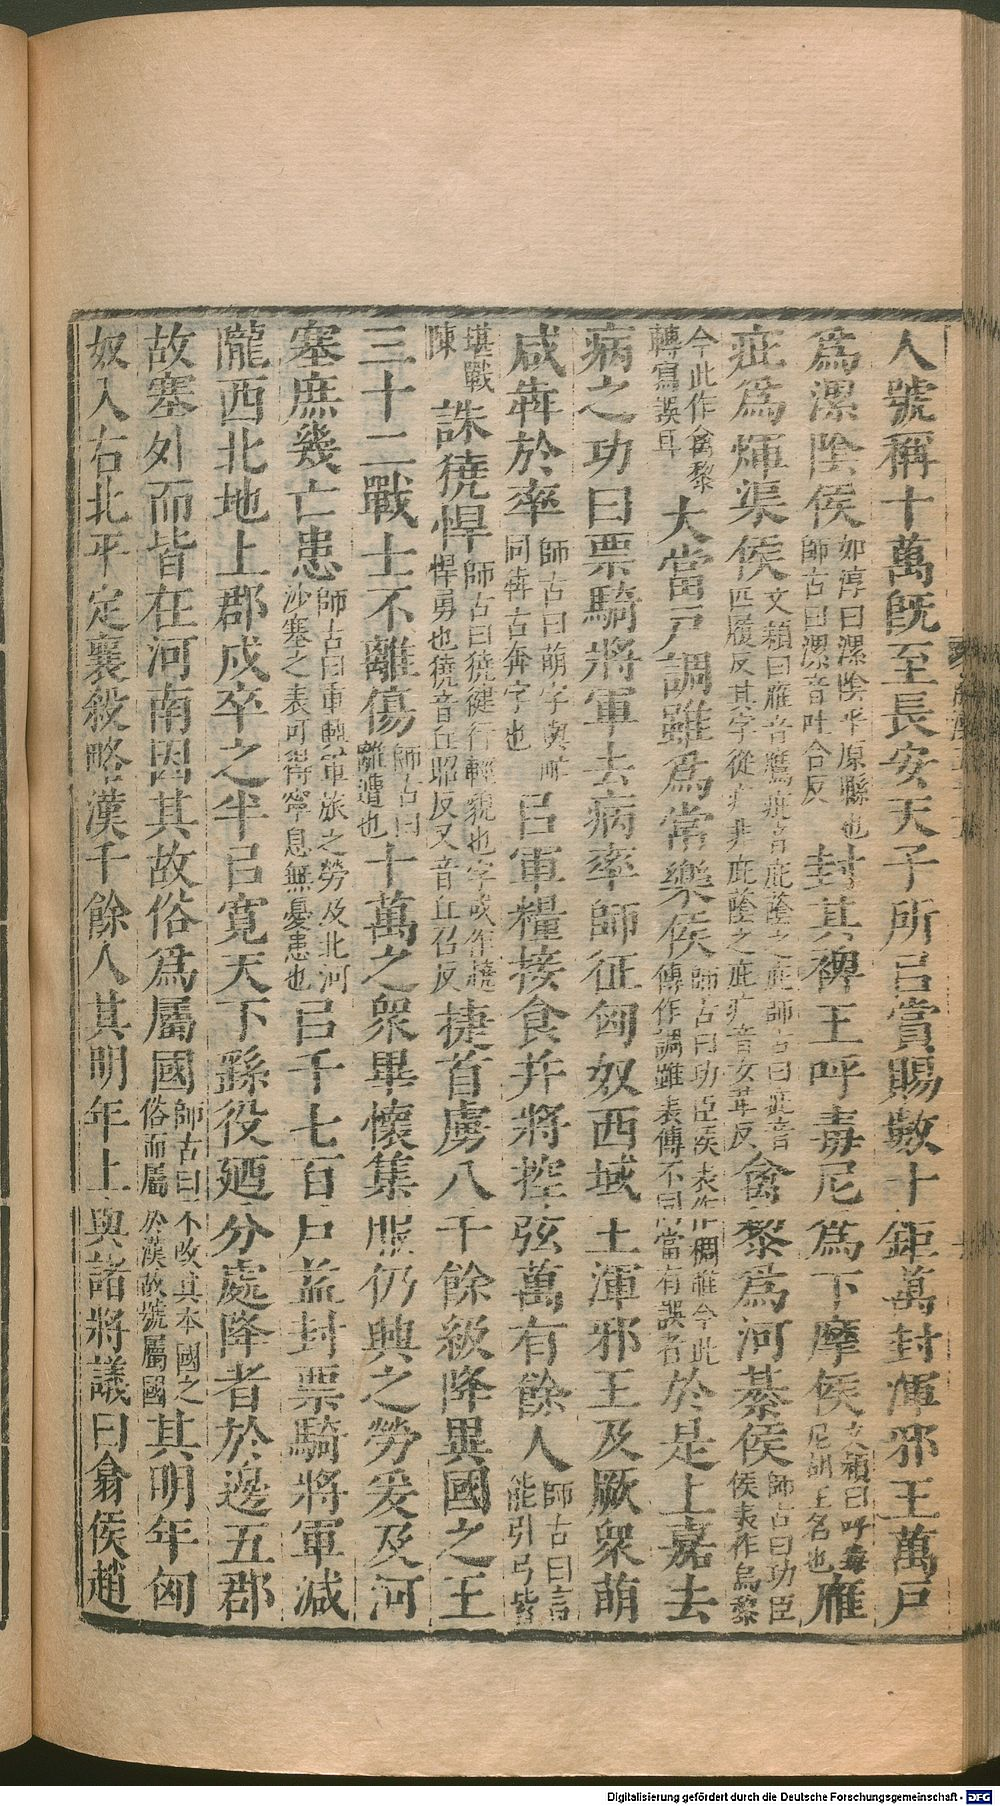 人號稱十萬旣至長安天子所㠯賞賜數十鉅萬封渾邪王萬戶
爲漯陰侯如淳曰漯陰平原縣也師古曰漯音吐合反封其裨王呼毒尼爲下摩侯文穎曰呼毒尼胡王名也雁
疵爲煇渠侯文穎曰雁音鷹疵音庇蔭之庇師古曰疵音匹履反其字從疒非庇蔭之庇疒音女革反禽黎爲河綦侯師古曰功臣侯表作烏黎
今此作禽黎轉寫誤耳大當戶調雖爲常樂侯師古曰功臣侯表作稠雖今此傳作調雖表傳不同當有誤者於是上嘉去
病之功曰票騎將軍去病率師征匈奴西域王渾邪王及厥衆萌
咸犇於率師古曰萌字與甿同犇古奔字也㠯軍糧接食并將控弦萬有餘人師古曰言能引弓皆
堪戰陳誅獟悍師古曰獟健行輕貌也字或作趬悍勇也獟音丘昭反又音丘召反捷首虜八千餘級降異國之王
三十二戰士不離傷師古曰離遭也十萬之衆畢懷集服仍興之勞爰及河
塞庶幾亡患師古曰重輿軍旅之勞及北河沙塞之表可得寧息無憂患也㠯千七百戶益封票騎將軍減
隴西北地上郡戍卒之半㠯寬天下繇役廼分處降者於邊五郡
故塞外而皆在河南因其故俗爲屬國師古曰不改其本國之俗而屬於漢故號屬國其明年匈
奴入右北平定襄殺略漢千餘人其明年上與諸將議曰翕侯趙
Digitalisierung gefördert durch die Deutsche Forschungsgemeinschaft - DFG